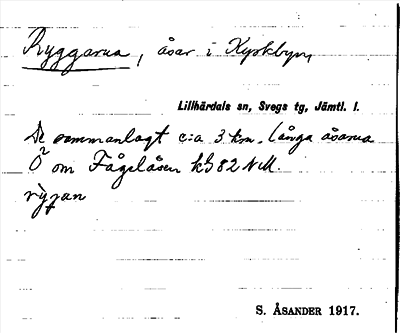 Ryggarna, åsar i Kyrkbyn,
Lillhärdals sn, Svegs tg, Jämtl. l.
De sammanlagt c:a 3 km. långa åsarna
Ö om Fågelåsen kb 82 NM.
S. ÅSANDER 1917.